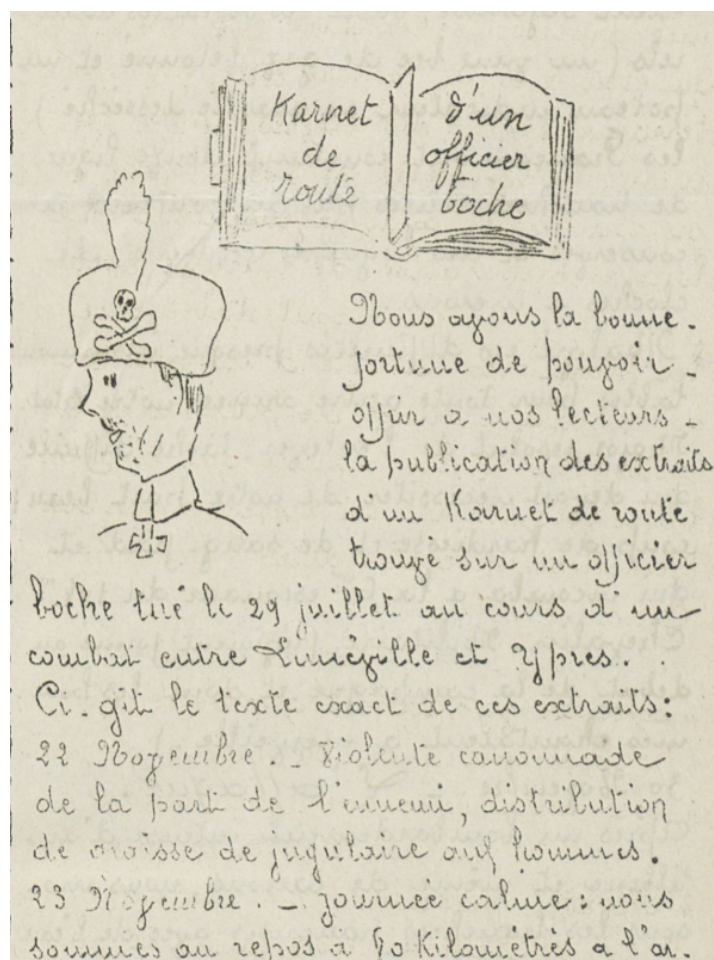 Karnet
de
route
d'un
officier
boche
Nous avons la bonne.
fortune de pouvoir -
offrir a nos lecteurs -
la publication des extraits
d'un Karnet de route
trouvé sur un officier
boche tué le 29 juillet au cours d'un
combat entre Lunéville et Ypres.
Ci-gît le texte exact de ces extraits:
22 Novembre. - Violente canonnade
de la part de l'ennemi, distribution
de graisse de jugulaire aux hommes.
23 Novembre. - Journée calme: nous
sommes au repos à 80 Kilomètres a l'ar.